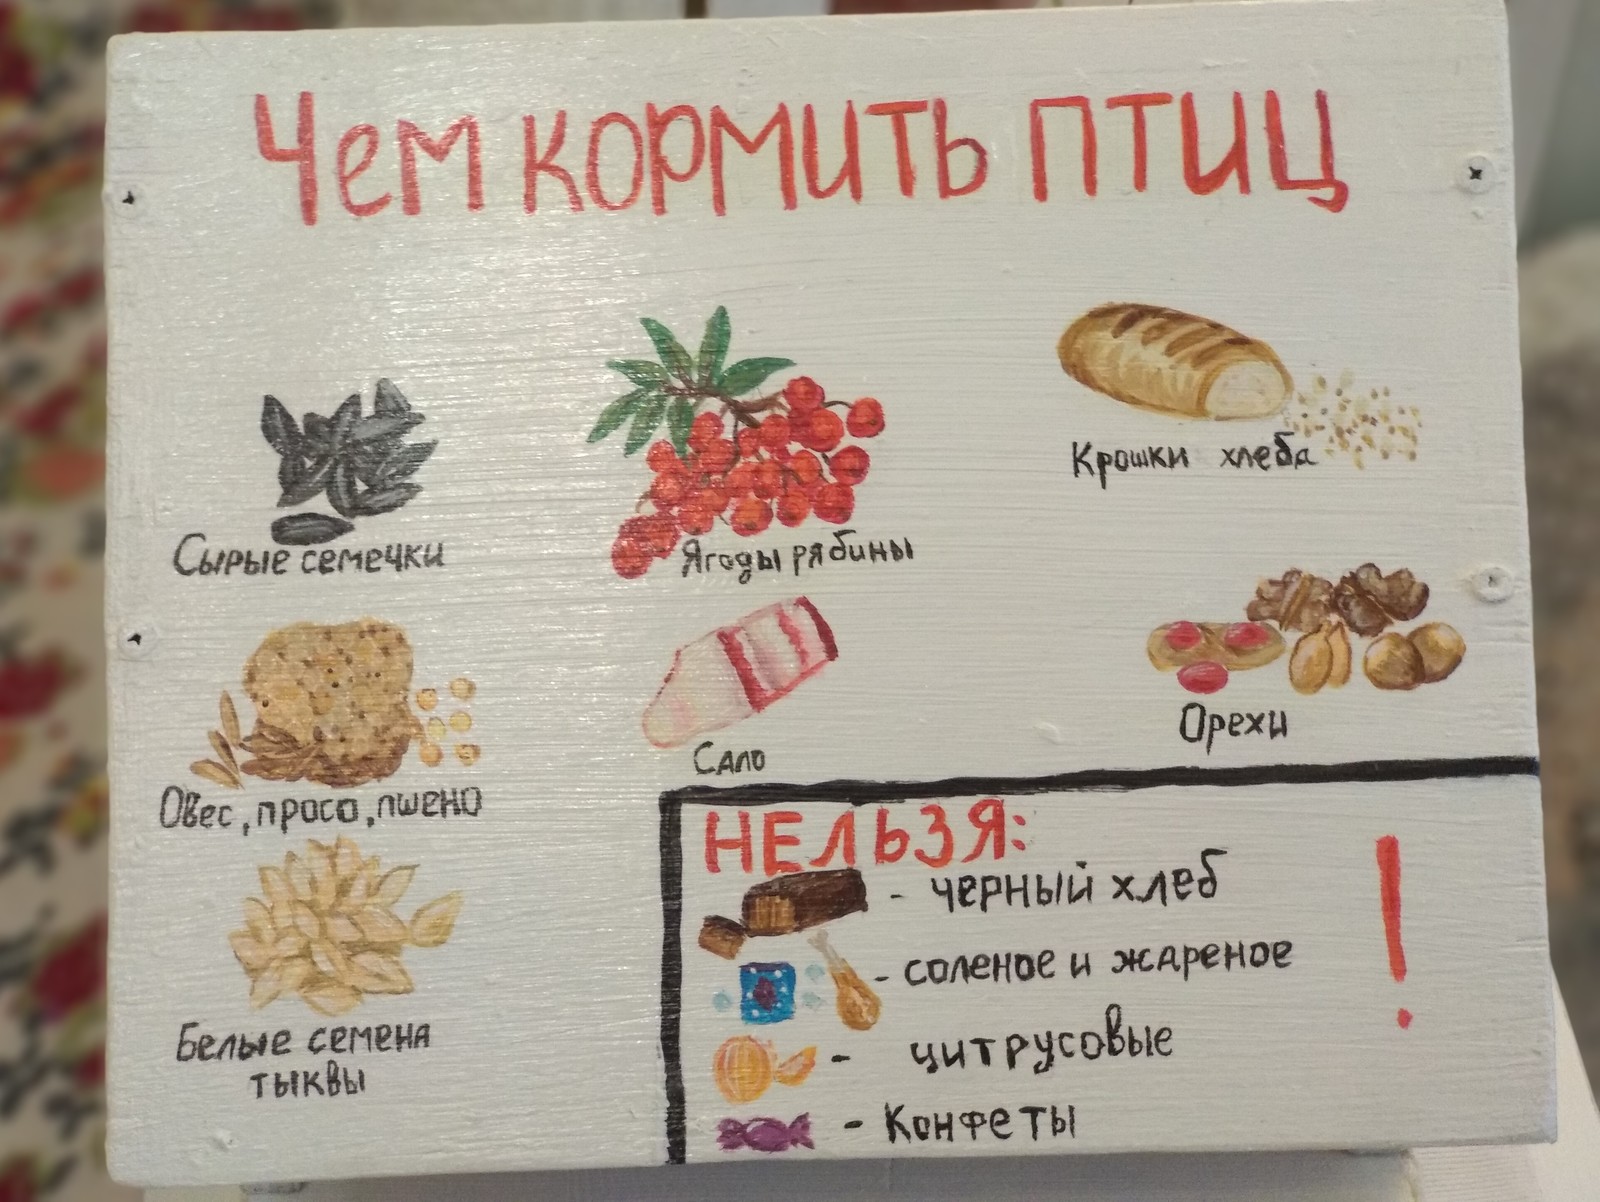 Чем кормить птиц
Сырые семечки
Ягоды рябины
Крошки хлеба
Овес, просо, пшено
Сало
Орехи
Белые семена
тыквы
НЕЛЬЗЯ:
- черный хлеб
- соленое и жареное
- цитрусовые
- Конфеты
!